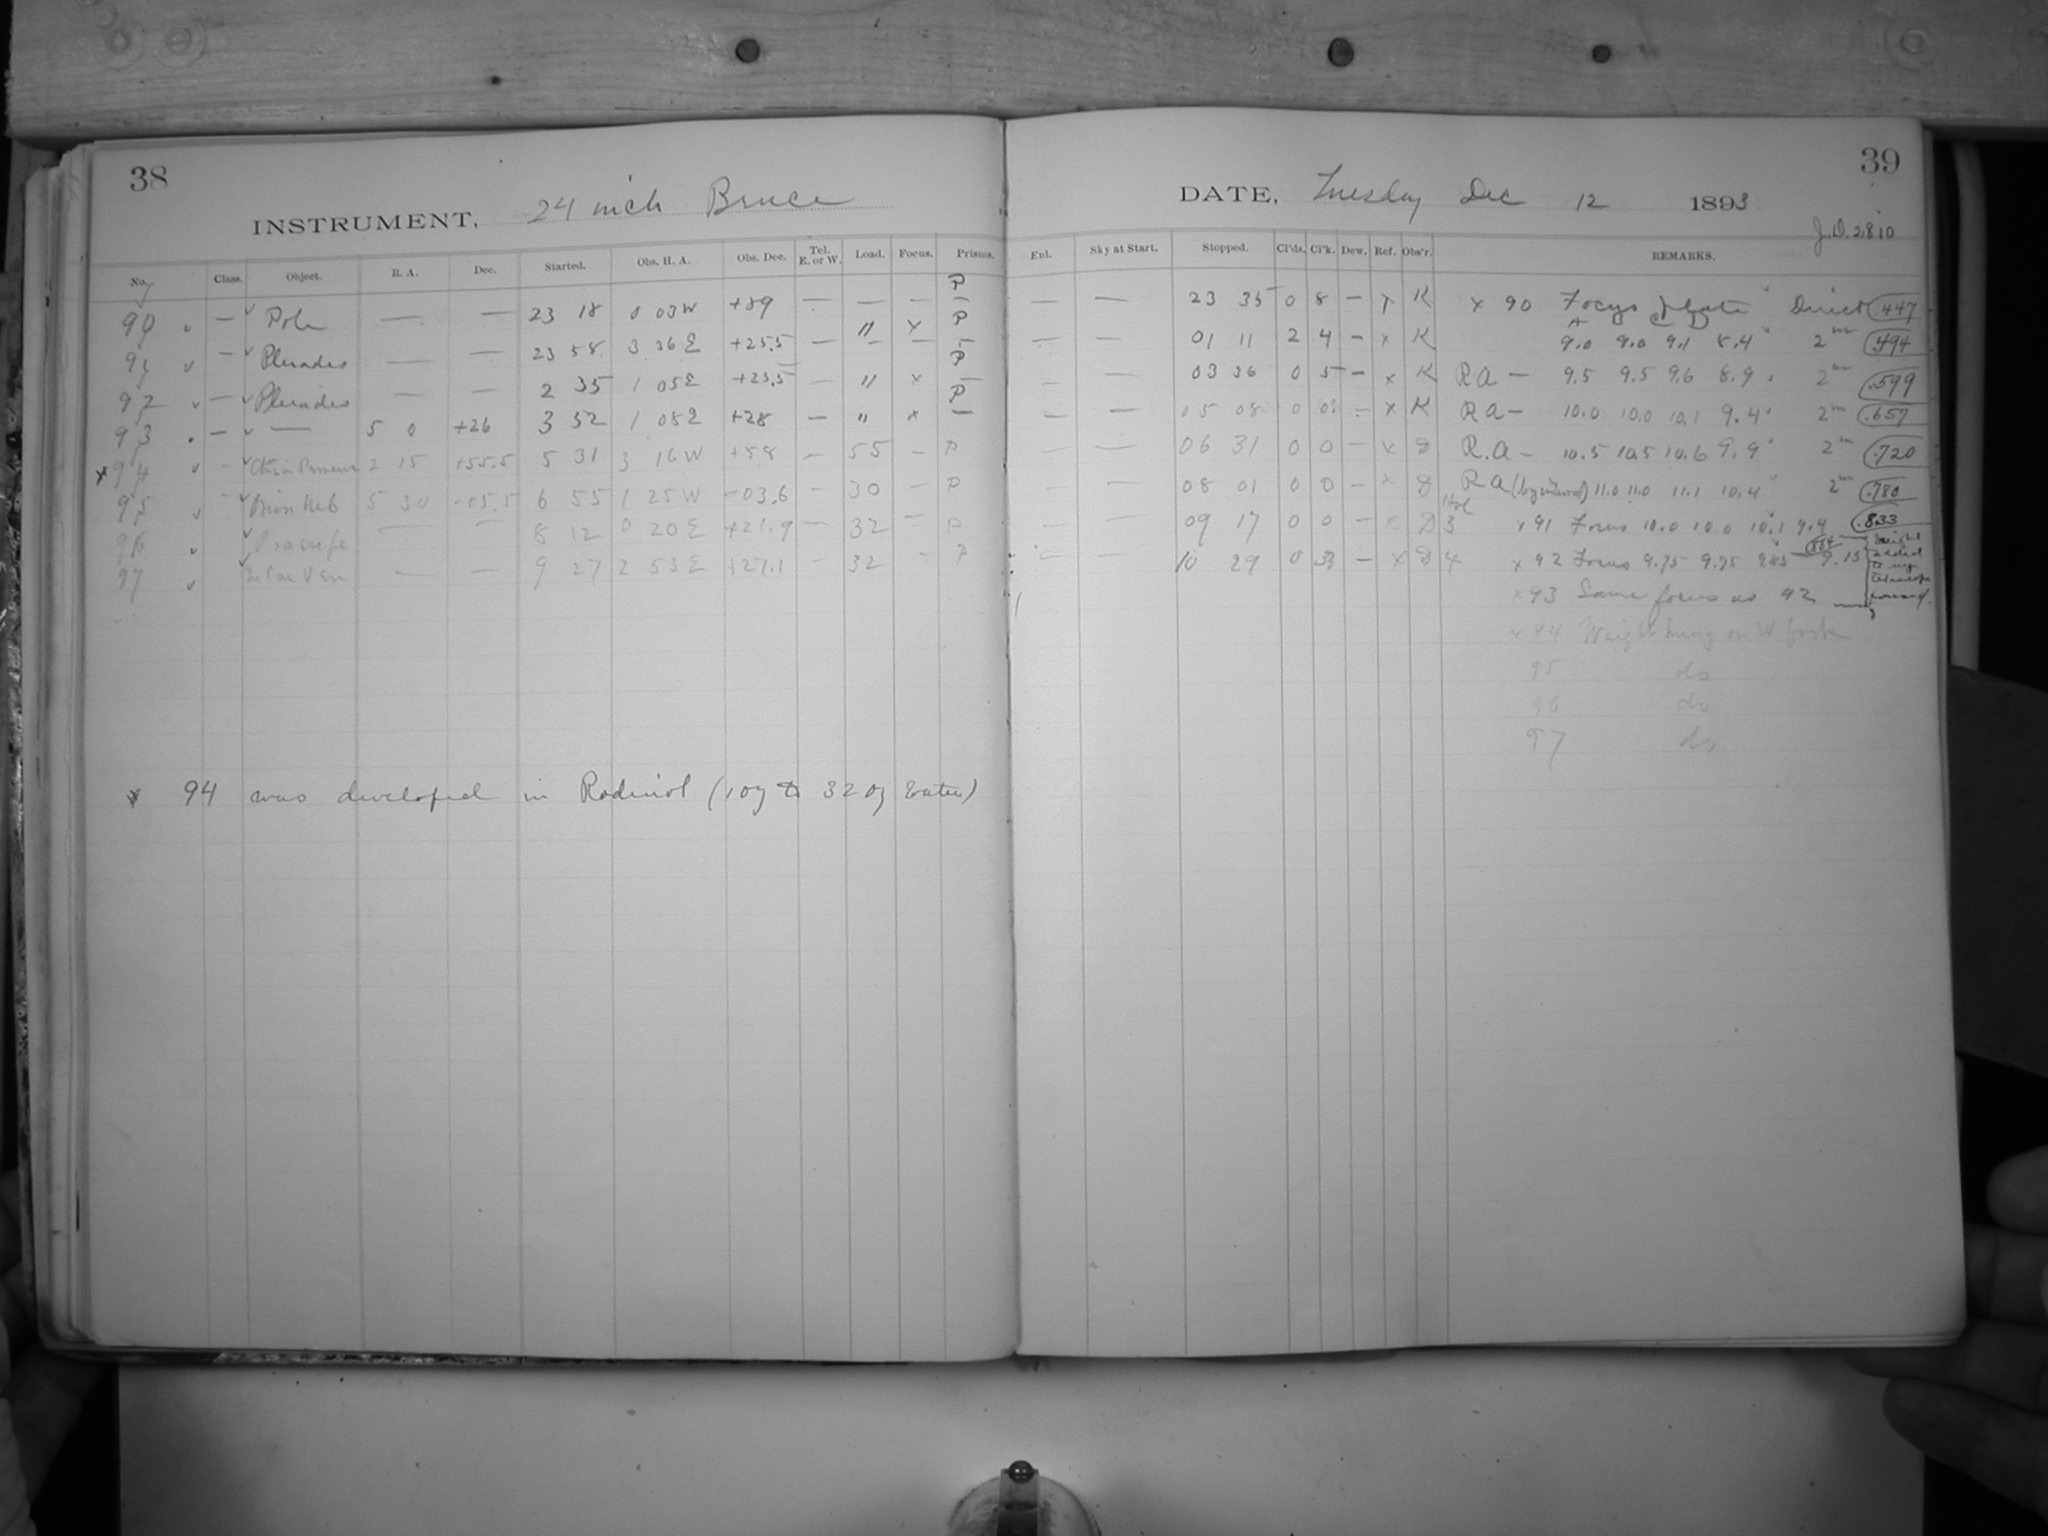 38
INSTRUMENT, 24 inch Bruce
No. Class. Object. R. A. Dec. Started. Obs. H. A. Obs. Dec. Tel. E. or W. Load. Focus. Prisms.
90 — Pole — — 23 18 0 03 W +89 — — — P
91 — Pleiades — — 23 58 3 36 E +25.5 — " x P
92 — Pleiades — — 2 35 1 05 E +23.5 — " x P
93 — — 5 0 +26 3 52 1 08 E +28 — " x P
x 94 — 2 15 +55.5 5 31 3 16 W +58 — 55 — P
95 — Orion Neb 5 30 -05.5 6 55 1 25 W -03.6 — 30 — P
96 Praesepe — — 8 12 0 20 E +21.9 — 32 — P
97 — — 9 27 2 53 E +27.1 — 32 — P
x 94 was developed in Rodinol (1 oz to 32 oz water)
39
DATE, Tuesday Dec 12 1893
J.D. 2810
Enl. Sky at Start. Stopped. Cl'ds. Cl'k. Dew. Ref. Obs'r. REMARKS.
— — 23 35 0 8 — x K x 90 Focus plate Direct .447
— — 01 11 2 4 — x K 9.0 9.0 9.1 8.4 2m .494
— — 03 36 0 5 — x K RA — 9.5 9.5 9.6 8.9 2m .599
— — 05 08 0 0 — x K RA — 10.0 10.0 10.1 9.4 2m .657
— — 06 31 0 0 — x D R.A — 10.5 10.5 10.6 9.9 2m .720
— — 08 01 0 0 — x D RA 11.0 11.0 11.1 10.4 2m .780
— — 09 17 0 0 — x D 3 x 91 Focus 10.0 10.0 10.1 9.4 .833
— — 10 29 0 — x D 4 x 92 Focus 9.75 9.75 9.85 9.15 .884
weight added to
telescope
x 93 Same focus as 92
x 94 Weight hung on W fork
95 do
96 do
97 do